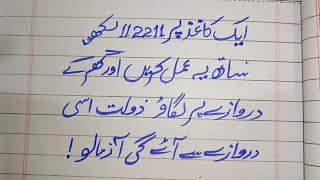 ایک کاغذ پر 112211 لکھو
ساتھ یہ عمل کریں اور گھر کے
دروازے پر لگاؤ دولت اسی
دروازے سے آئے گی آزمالو!